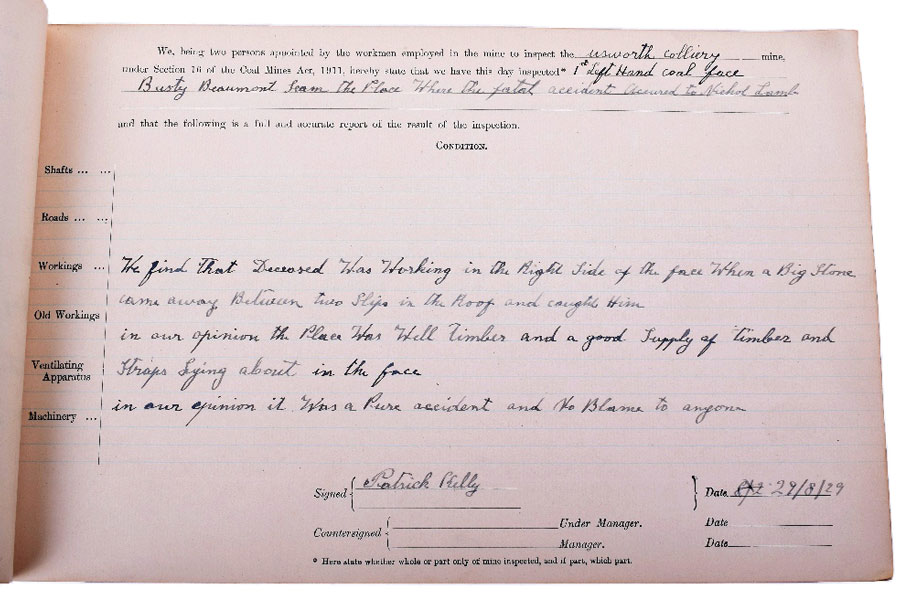 We, being two persons appointed by the workmen employed in the mine to inspect the usworth colliery mine,
under Section 16 of the Coal Mines Act, 1911, hereby state that we have this day inspected* 1st Left Hand coal face
Busty Beaumont Seam The Place Where The fatal accident Occured to Nichol Lamb
and that the following is a full and accurate report of the result of the inspection.
CONDITION.
Shafts ... ...
Roads ... ...
Workings ... We find That Deceased Was Working in the Right Side of the face When a Big Stone
came away Between two Slips in the Roof and caught Him
Old Workings
in our opinion the Place Was Well Timber and a good Supply of Timber and
Ventilating
Apparatus
Straps Lying about in the face
Machinery ... in our opinion it Was a Pure accident and No Blame to anyone
Signed Patrick Kelly Date 29/8/29
Countersigned Under Manager. Date
Manager. Date
* Here state whether whole or part only of mine inspected, and if part, which part.